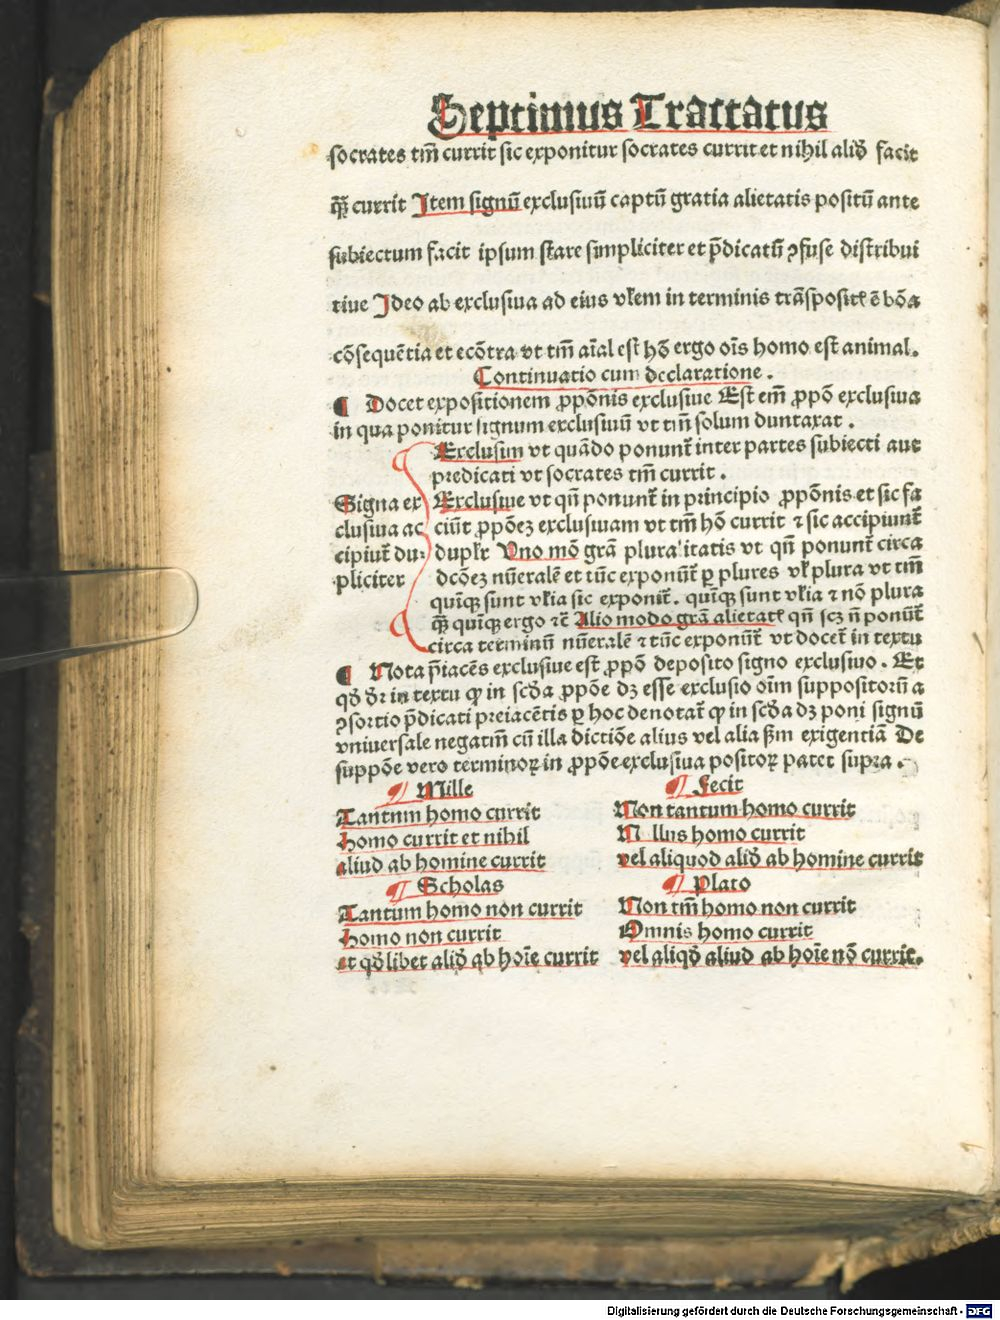 Septimus Tractatus
socrates tm̄ currit sic exponitur socrates currit et nihil aliđ facit
q̄ꝫ currit Item signū exclusiuū captū gratia alietatis positū ante
subiectum facit ipsum stare simpliciter et p̄dicatū ꝯfuse distribui
tiue Ideo ab exclusiua ad eius vłem in terminis trāsposit᷑ ē bōa
cōsequētia et ecōtra vt tm̄ aīal est hō ergo oīs homo est animal.
Continuatio cum declaratione.
¶ Docet expositionem ꝓpōnis exclusiue Est em̄ ꝓpō exclusiua
in qua ponitur signum exclusiuū vt tm̄ solum duntaxat.
Signa ex
clusiua ac
cipiunt᷑ du
pliciter
Exclusim vt quādo ponunt᷑ inter partes subiecti aut
predicati vt socrates tm̄ currit.
Exclusiue vt qn̄ ponunt᷑ in principio ꝓpōnis et sic fa
ciūt ꝓpōeꝫ exclusiuam vt tm̄ hō currit ⁊ sic accipiunt᷑
duplr̄ Vno mō grā pluralitatis vt qn̄ ponunt᷑ circa
dcōeꝫ nūeralē et tūc exponūt᷑ ꝑ plures vł plura vt tm̄
quīqꝫ sunt vłia sic exponit᷑. quīqꝫ sunt vłia ⁊ nō plura
q̄ꝫ quīqꝫ ergo ⁊c̄ Alio modo grā alietat᷑ qn̄ scꝫ n̄ ponūt᷑
circa terminū nūeralē ⁊ tūc exponūt᷑ vt docet᷑ in textu
¶ Nota p̄iacēs exclusiue est ꝓpō deposito signo exclusiuo. Et
qđ dr̄ in textu ꝙ in scđa ꝓpōe dꝫ esse exclusio oīm suppositorū a
ꝯsortio p̄dicati preiacētis ꝑ hoc denotat᷑ ꝙ in scđa dꝫ poni signū
vniuersale negatm̄ cū illa dictiōe alius vel alia ẜm exigentiā De
suppōe vero terminoꝝ in ꝓpōe exclusiua positoꝝ patet supra.
¶ Mille
Tantum homo currit
Homo currit et nihil
aliud ab homine currit
¶ Fecit
Non tantum homo currit
N llus homo currit
vel aliquod aliđ ab homine currit
¶ Scholas
Tantum homo non currit
Homo non currit
et qđlibet aliđ ab hoīe currit
¶ Plato
Non tm̄ homo non currit
Omnis homo currit
vel aliqđ aliud ab hoīe nō currit.
Digitalisierung gefördert durch die Deutsche Forschungsgemeinschaft - DFG